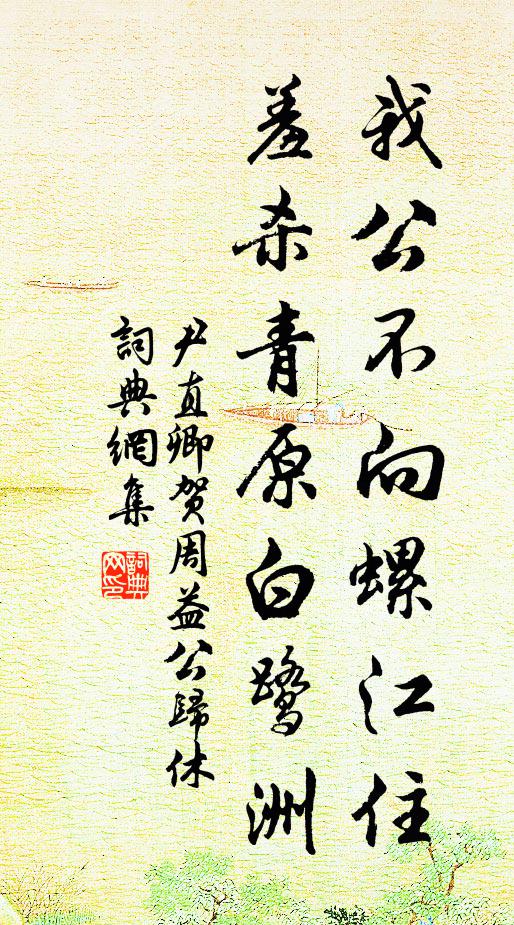 我公不向螺江住
羞杀青原白鹭洲
尹直卿贺周益公歸休
詞典網集
詞典
网印